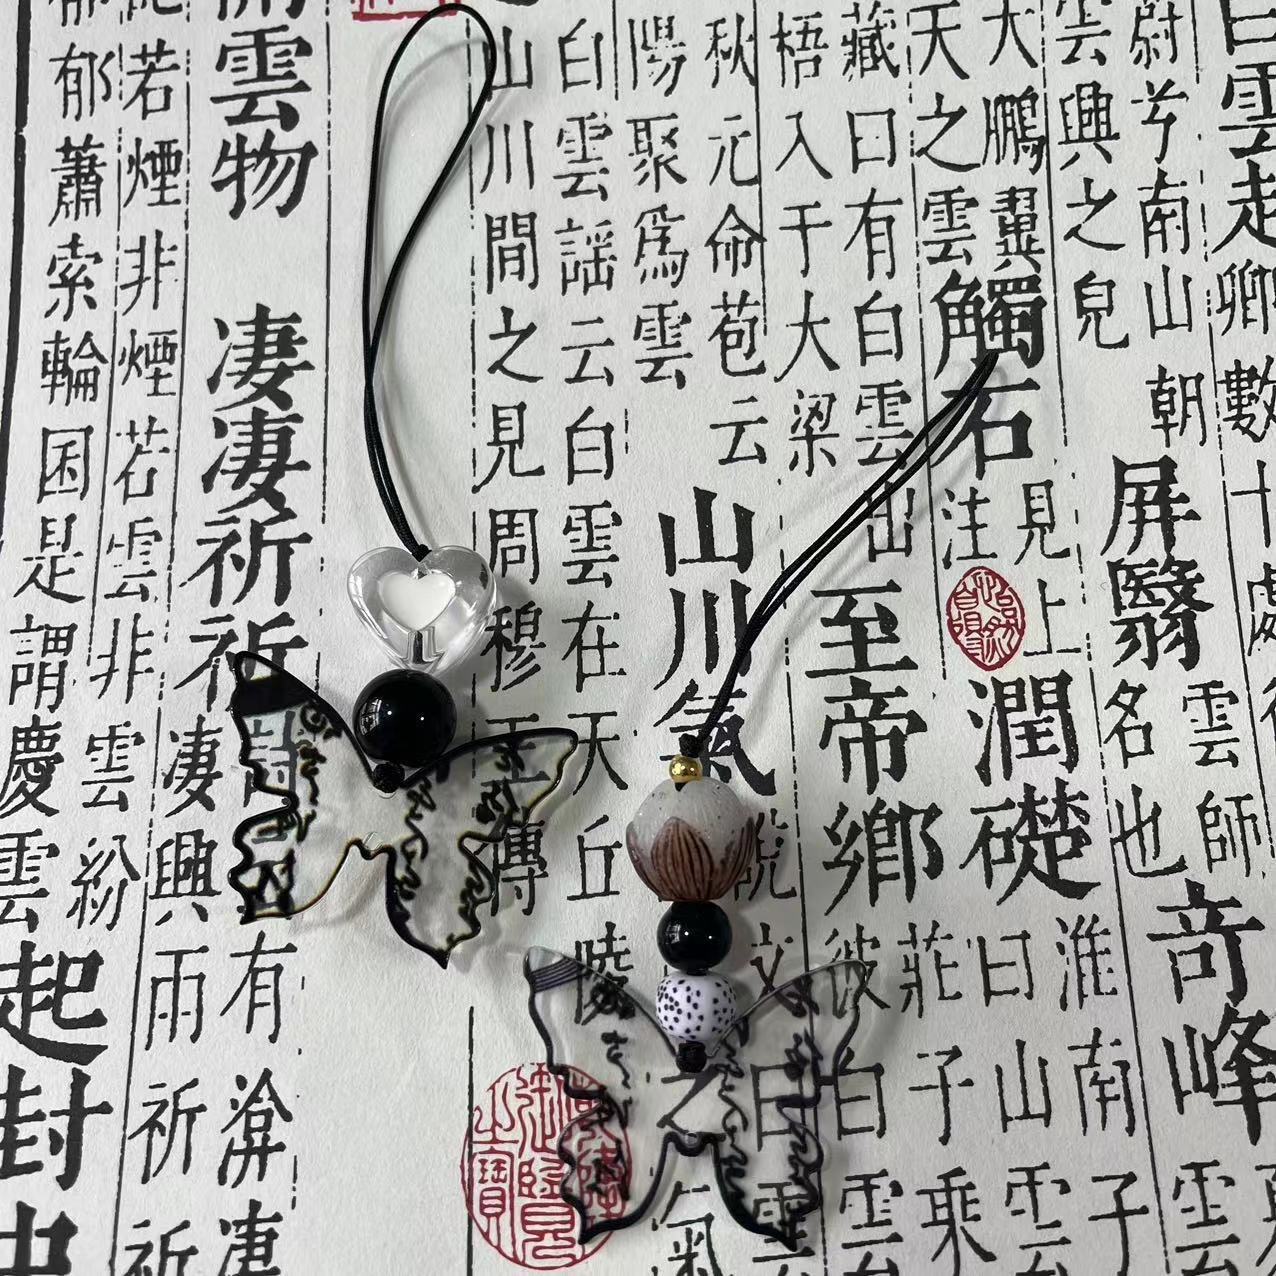 雲走
卿數十處
蔚兮南山朝
雲興之皃
屏翳
雲師
名也
奇峰
雲
大鵬翼
天之雲
觸石
見上
注
潤礎
淮南子
曰山雲
藏曰有白雲出
梧入于大梁
至帝鄉
莊子乘
彼白雲
秋元命苞云
陽聚爲雲
山川氣
曰雲
之气
白雲謠云白雲在天丘陵
山川間之見周穆王傳
開雲物
淒淒祈祈
有渰淒
淒興雨祈
若煙非煙若雲非雲紛
郁蕭索輪囷是謂慶雲
起封中